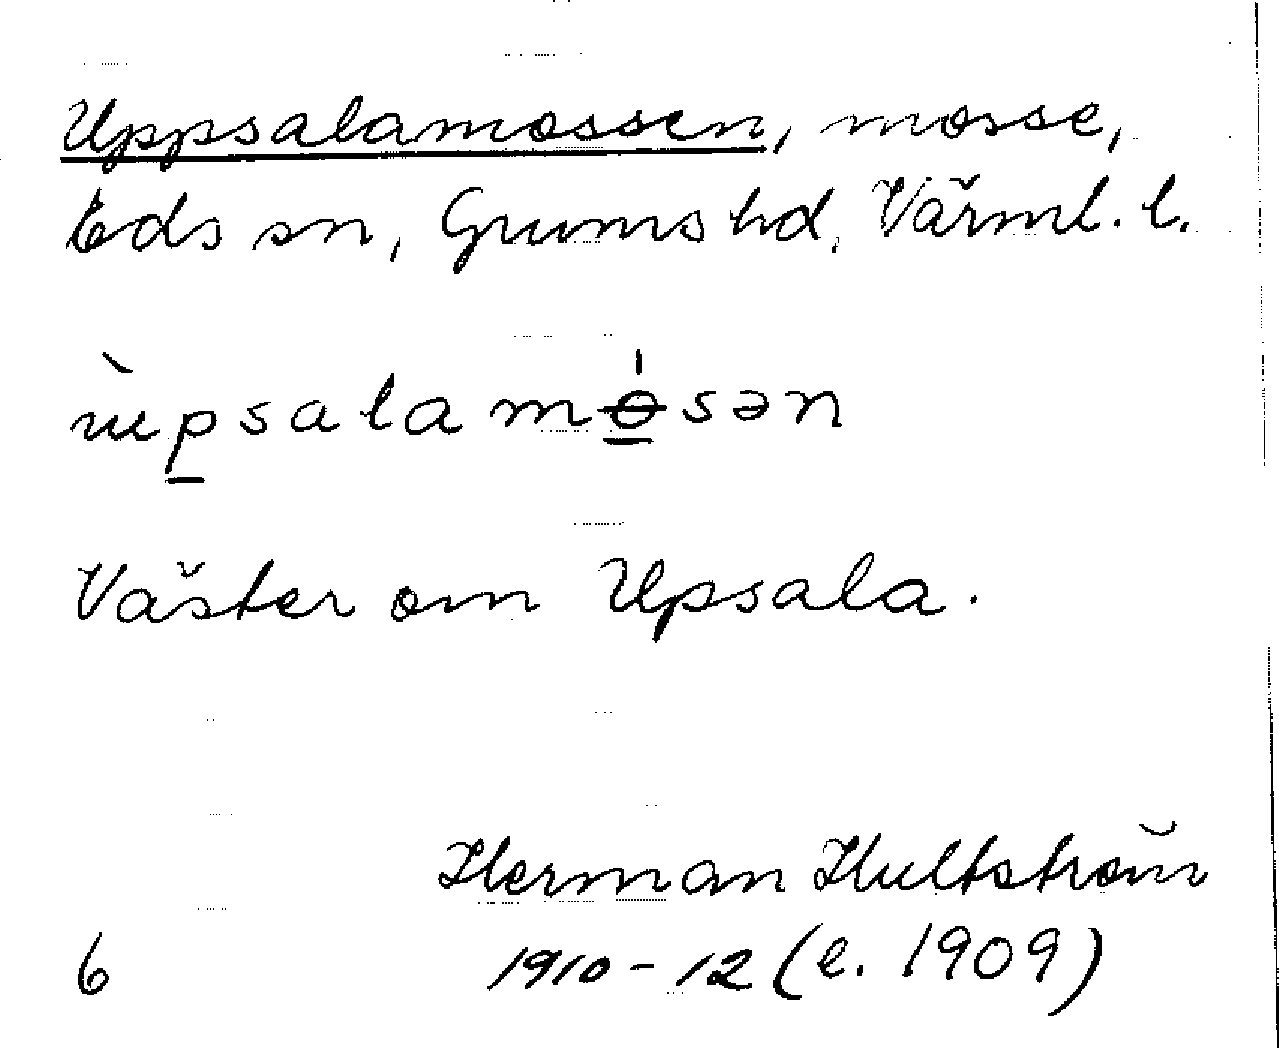 Uppsalamossen, mosse,
Eds sn, Grums hd, Värml. l.
ùpsalamɵ́sən
Väster om Upsala.
Herman Hultström
6 1910-12 (e. 1909)